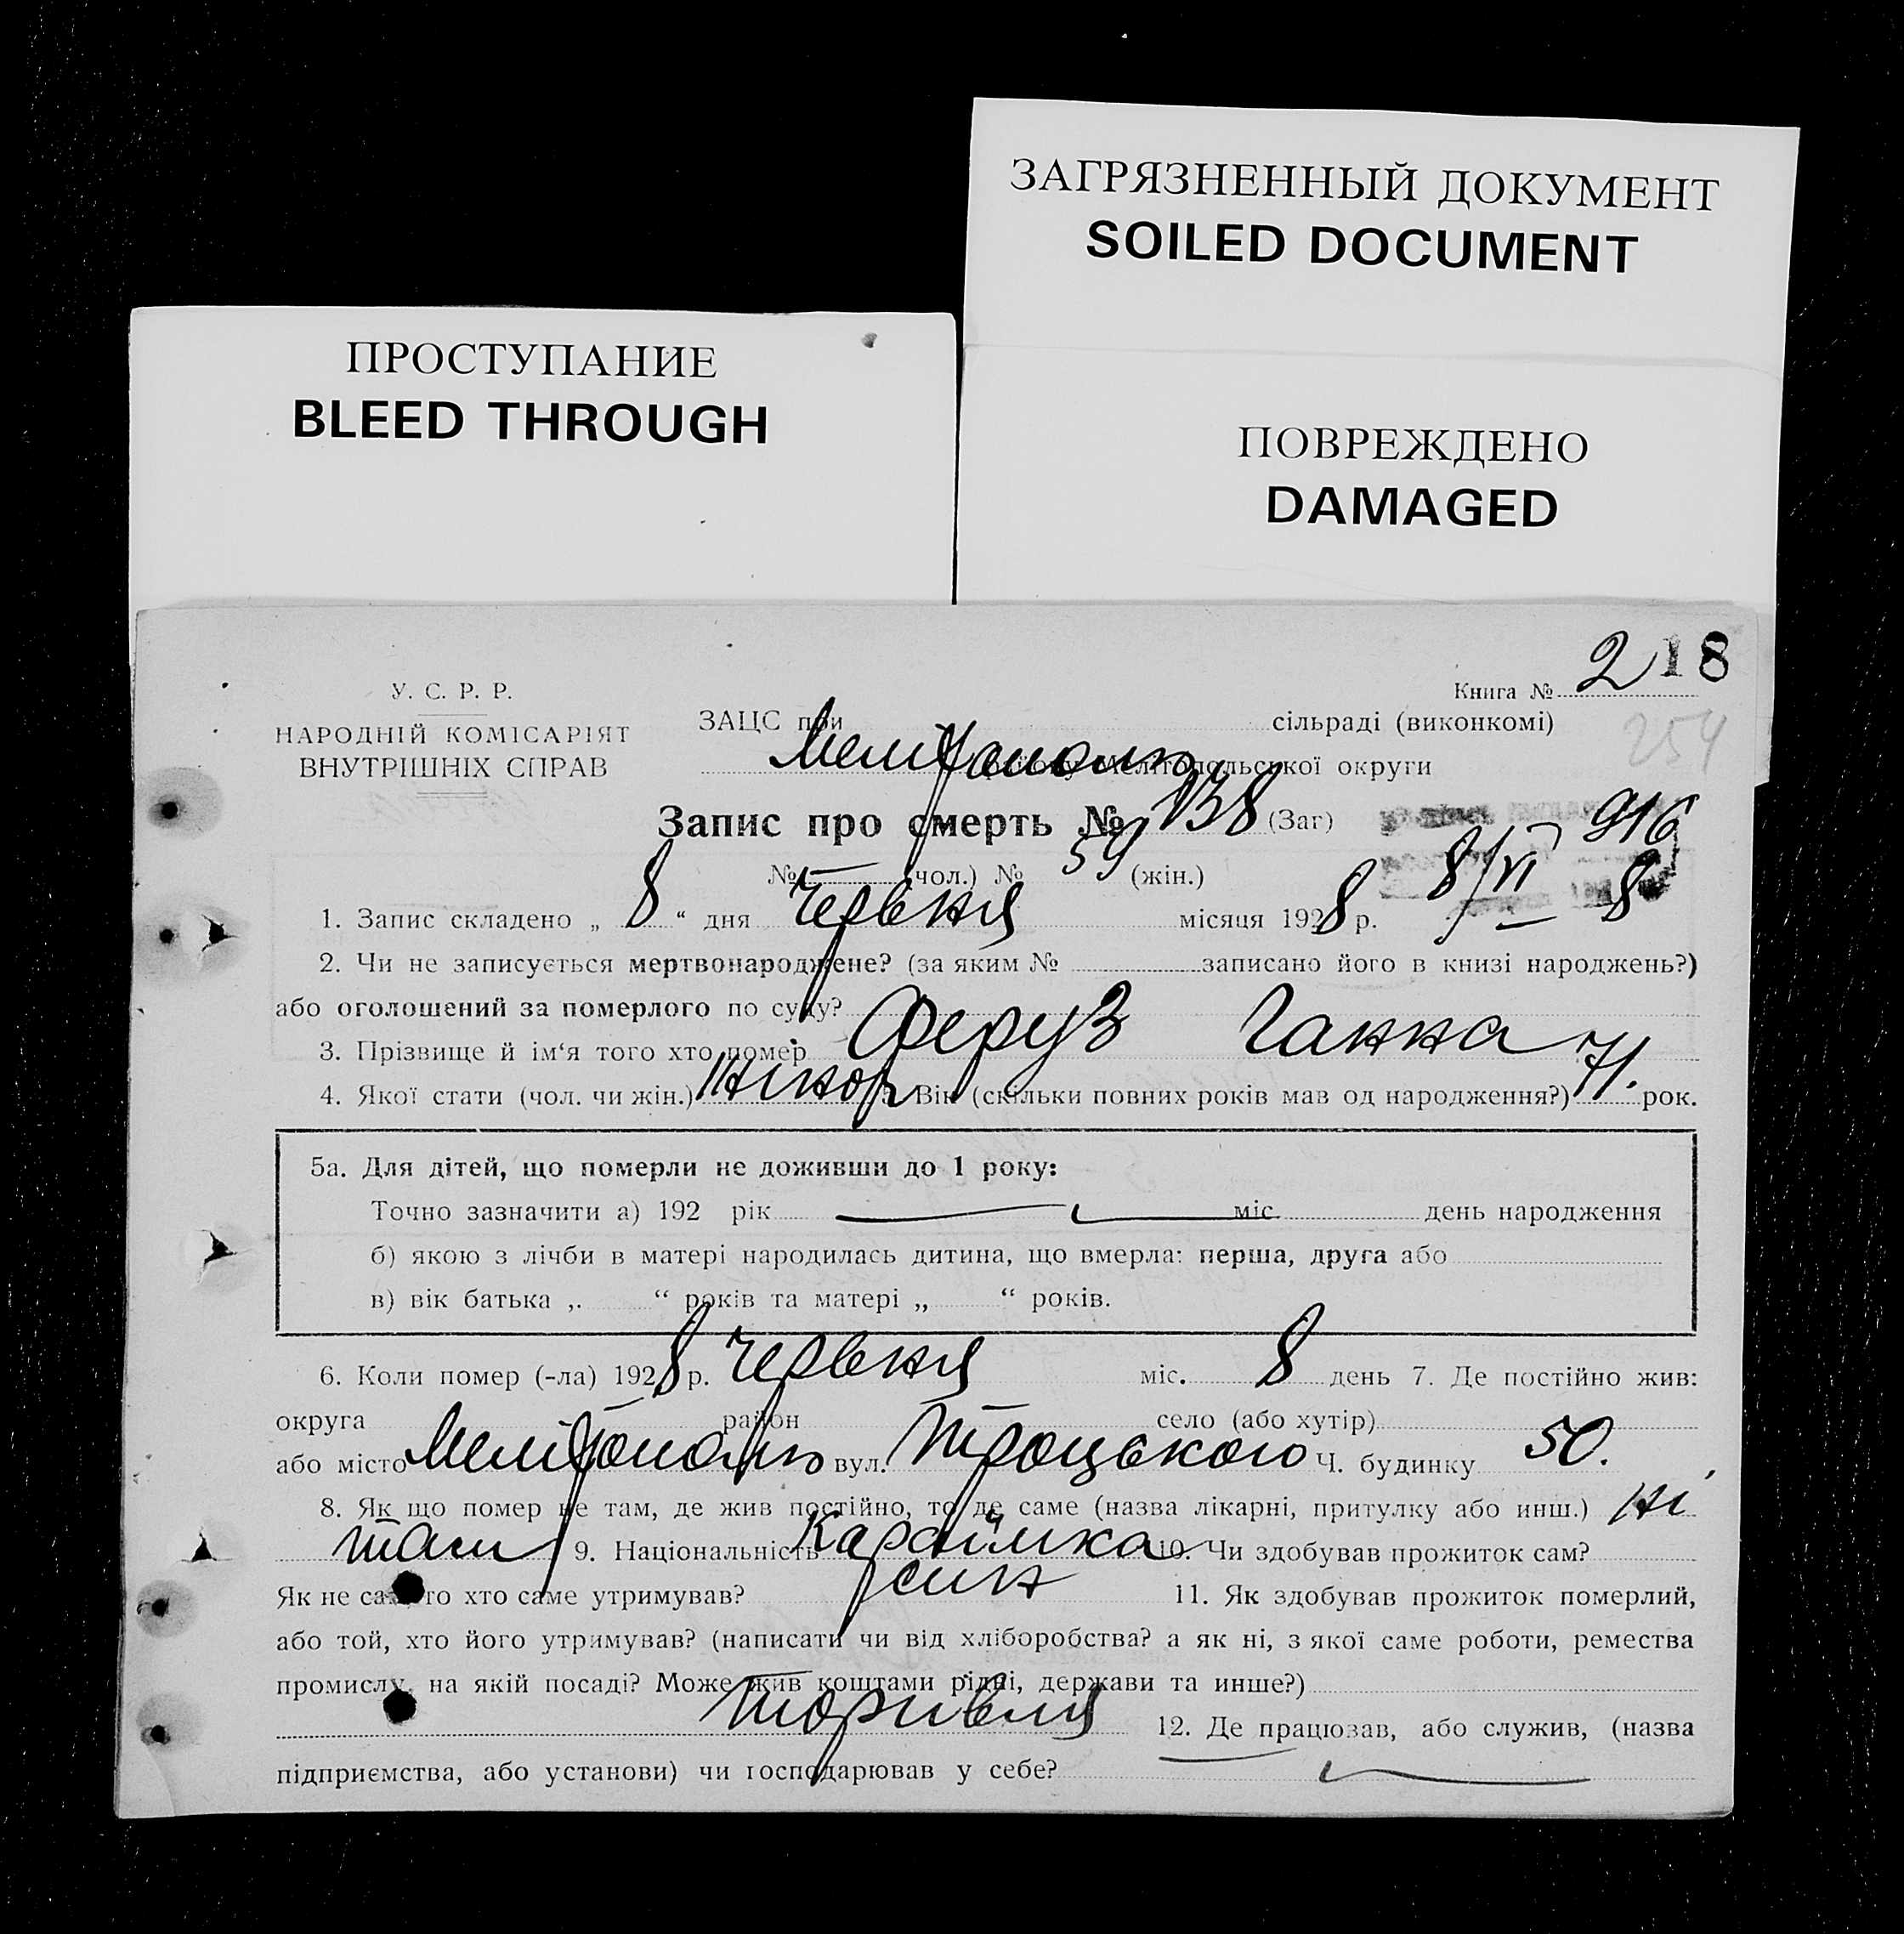 ЗАГРЯЗНЕННЫЙ ДОКУМЕНТ
SOILED DOCUMENT
ПРОСТУПАНИЕ
BLEED THROUGH
ПОВРЕЖДЕНО
DAMAGED
Книга № 2 18
254
У. С. Р. Р.
НАРОДНІЙ КОМІСАРІЯТ
ВНУТРІШНІХ СПРАВ
ЗАЦС при сільраді (виконкомі)
Мелітополь району Мелітопольської округи
Запис про смерть № 138 (Заг)
916
№ чол.) № 59 (жін.)
8/VI 8
1. Запис складено „ 8 “ дня Червня місяця 1928 р.
2. Чи не записується мертвонароджене? (за яким № записано його в книзі народжень?)
або оголошений за померлого по суду?
3. Прізвище й ім‘я того хто помер Феруз Ганна
4. Якої стати (чол. чи жін.) жінор 5. Вік (скільки повних років мав од народження?) 71. рок.
5а. Для дітей, що померли не доживши до 1 року:
Точно зазначити а) 192 рік міс. день народження
б) якою з лічби в матері народилась дитина, що вмерла: перша, друга або
в) вік батька „ “ років та матері „ “ років.
6. Коли помер (-ла) 1928 р. Червня міс. 8 день 7. Де постійно жив:
округа район село (або хутір)
або місто Мелітополь вул. Троцького Ч. будинку 50.
8. Як що помер не там, де жив постійно, то де саме (назва лікарні, притулку або инш.) ні
там 9. Національність Караїмка 10. Чи здобував прожиток сам?
Як не сам, то хто саме утримував? син 11. Як здобував прожиток померлий,
або той, хто його утримував? (написати чи від хліборобства? а як ні, з якої саме роботи, ремества
промислу, на якій посаді? Може жив коштами рідні, держави та инше?)
торгівля 12. Де працював, або служив, (назва
підприємства, або установи) чи господарював у себе?